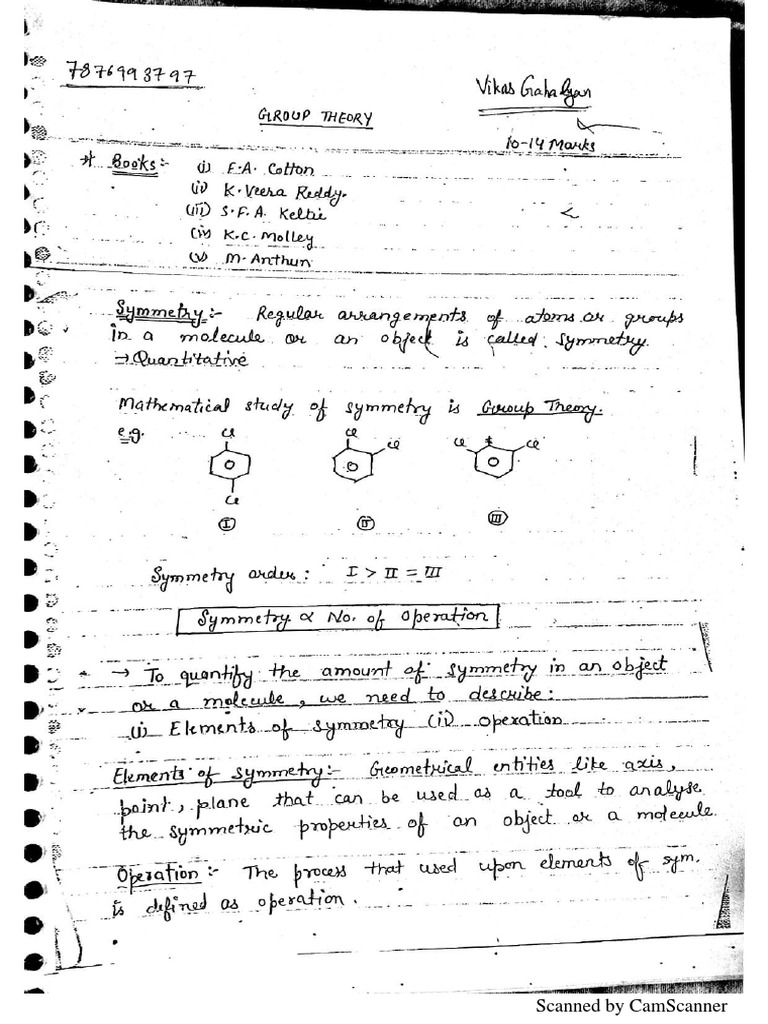 7876993797
Vikas Gahalyan
GROUP THEORY
10-14 Marks
* Books:- (i) F.A. Cotton
(ii) K. Veera Reddy.
(iii) S.F.A. Keltie
(iv) K.C. Molley
(v) M. Anthun
Symmetry:- Regular arrangements of atoms or groups
in a molecule or an object is called symmetry.
→ Quantitative
Mathematical study of symmetry is Group Theory.
e.g.
Cl Cl Cl Cl Cl
Cl
I II III
Symmetry order: I > II = III
Symmetry ∝ No. of operation
→ To quantify the amount of symmetry in an object
or a molecule, we need to describe:
(i) Elements of symmetry (ii) operation
Elements of symmetry:- Geometrical entities like axis,
point, plane that can be used as a tool to analyse
the symmetric properties of an object or a molecule
Operation:- The process that used upon elements of sym.
is defined as operation.
Scanned by CamScanner